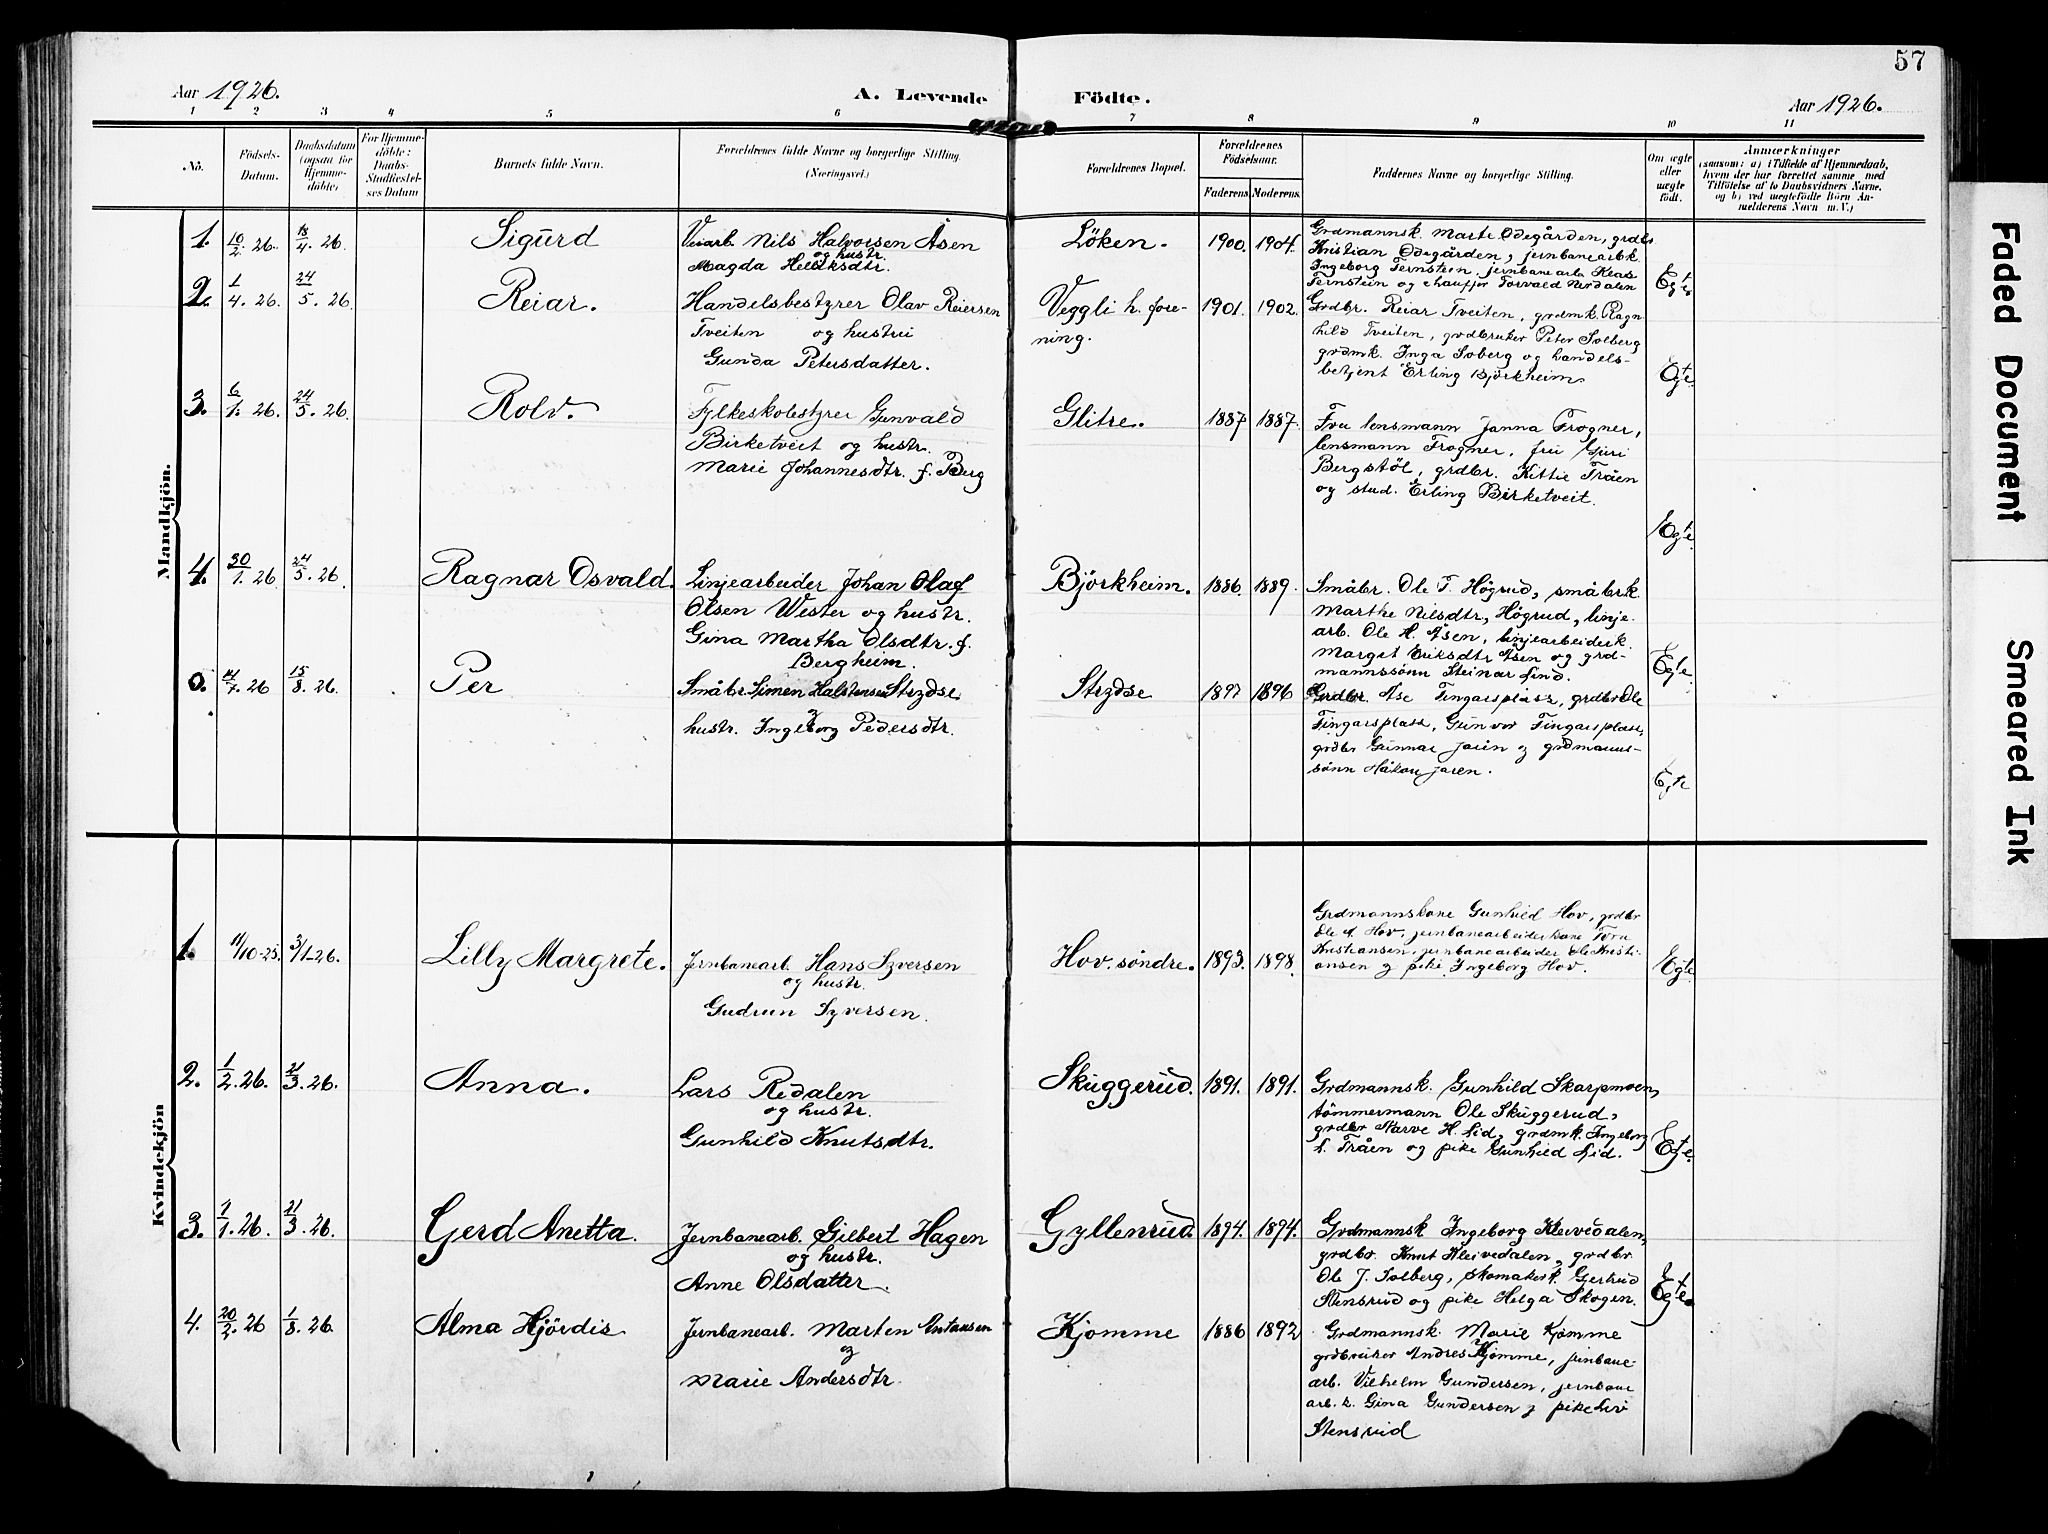 57
Aar 1926.
A. Levende Födte.
Aar 1926.
1 2 3 4 5 6 7 8 9 10 11
No.
Födsels-
Datum.
Daabsdatum
(ogsaa for
Hjemme-
döbte)
For Hjemme-
döbte:
Daabs-
Stadfæstel-
ses Datum
Barnets fulde Navn.
Forældrenes fulde Navne og borgerlige Stilling.
(Næringsvei.)
Forældrenes Bopæl.
Forældrenes
Födselsaar.
Faderens. Moderens.
Faddernes Navne og borgerlige Stilling.
Om ægte
eller
uægte
født.
Anmærkninger
(saasom: a) i Tilfælde af Hjemmedaab,
hvem der har forrettet samme, med
Tilföielse af to Daabsvidners Navne,
og b) ved uægtefödte Börn An-
melderens Navn m. V.)
Mandkjön.
1. 10/2.26. 18/4.26. Sigurd
Veiarb. Nils Halvorsen Åsen
og hustr.
Magda Helliksdtr.
Löken. 1900. 1904.
Grdmannsk. Marte Ødegården, grdbr
Kristian Ødegården, jernbanearbk.
Ingeborg Fernstein, jernbanearb. Klas
Fernstein og chauffør Torvald Nerdalen
Egte
2. 1/4.26. 24/5.26. Reiar.
Handelsbestyrer Olav Reiersen
Tveiten og hustru
Gunda Petersdatter.
Veggli h. fore-
ning.
1901. 1902.
Grdbr. Reiar Tveiten, grdmk. Ragn
hild Tveiten, grdbruker Peter Solberg
grdmk. Inga Soberg og handels-
betjent Erling Björkheim.
Egte.
3. 6/1.26. 24/5.26. Rolv.
Fylkeskolestyrer Gunvald
Birketveit og hustr.
Marie Johannesdtr. f. Berg
Glitre. 1887 1887.
Fru lensmann Janna Frogner,
lensmann Frogner, frü Guri
Bergstöl, grdbr. Kittil Tråen
og stud. Erling Birketveit.
Egte.
4. 30/1.26 24/5.26. Ragnar Osvald.
Linjearbeider Johan Olaf
Olsen Wester og hustr.
Gina Martha Olsdtr. f.
Bergheim.
Björkheim. 1886. 1889.
Småbr. Ole T. Högrud, småbrk.
Marthe Nilsdtr, Högrud, linje
arb. Ole H. Åsen, linjearbeiderk.
Margit Eriksdtr Åsen og grd-
mannssönn Steinar Lind.
Egte.
5. 14/7.26 15/8.26. Per
Småbr. Simen Halstensen Strydse
hustr. Ingeborg Pedersdtr.
Strydse 1897 1896
Grdbr. Åse Fingarsplass, grdbr Ole
Fingarsplass, Gunvor Fingarsplass,
grdbr Gunnar Jaren og grdmanns-
sönn Håkon Jaren.
Egte
Kvindekjön
1. 11/10-25. 3/1-26. Lilly Margrete.
Jernbanearb. Hans Syversen
og hustr.
Gudrun Syversen.
Hov. söndre. 1893. 1898.
Grdmannskone Gunhild Hov, grdbr
Ole A Hov, jernbanearbeiderkone Torn
Kristiansen, jernbanearbeider Ole Kristi-
ansen og pike Ingeborg Hov.
Egte
2. 1/2.26. 21/3.26. Anna.
Lars Redalen
og hustr.
Gunhild Knutsdtr.
Skuggerud. 1891. 1891.
Grdmannsk. Gunhild Skarpmoen,
tömmermann Ole Skuggerud,
grdbr Starve H. Lid, grdmk. Ingeborg
L. Tråen og pike Gunhild Lid.
Egte.
3. 7/1.26. 21/3.26. Gerd Anetta.
Jernbanearb. Gilbert Hagen
og hustr.
Anne Olsdatter.
Gyllenrud. 1894. 1894.
Grdmannsk Ingeborg Kleivedalen,
grdbr. Knut Kleivedalen, grdbr.
Ole J. Solberg, skomakerk. Gertrud
Stensrud og pike Helga Skogen.
Egte.
4. 20/2.26 1/8.26. Alma Hjördis
Jernbanearb. Marten Antonsen
og
Marie Andersdtr.
Kjomme 1886 1892
Grdmannsk. Marie Kjomme
grdbruker Andres Kjomme, jernbane-
arb. Vilhelm Gundersen, jernbane
arb. k. Gina Gundersen og pike Liv
Stensrud
Faded Document
Smeared Ink